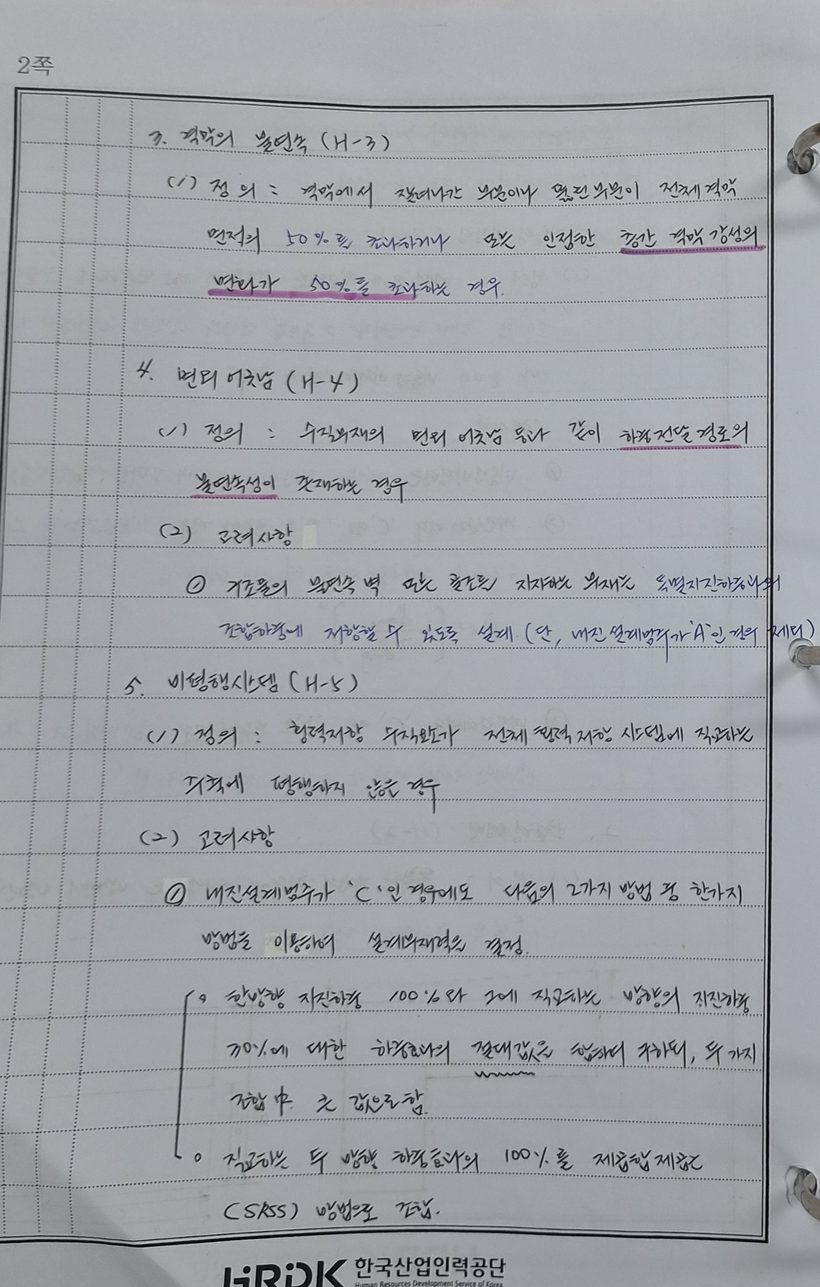 2쪽
3. 격막의 불연속 (H-3)
(1) 정의 : 격막에서 잘려나간 부분이나 뚫린부분이 전체격막
면적의 50%를 초과하거나 또는 인접한 층간 격막강성의
변화가 50%를 초과하는 경우.
4. 면외 어긋남 (H-4)
(1) 정의 : 수직부재의 면외 어긋남 등과 같이 하중전달경로의
불연속성이 존재하는 경우
(2) 고려사항
① 구조물의 불연속 벽 또는 골조를 지지하는 부재는 특별지진하중과의
조합하중에 저항할 수 있도록 설계 (단, 내진설계범주가 'A'인 경우 제외)
5. 비평행시스템 (H-5)
(1) 정의 : 횡력저항 수직요소가 전체횡력저항 시스템에 직교하는
주축에 평행하지 않은 경우
(2) 고려사항
① 내진설계범주가 'C'인 경우에도 다음의 2가지 방법 중 한가지
방법을 이용하여 설계부재력을 결정.
∘ 한방향 지진하중 100%와 그에 직교하는 방향의 지진하중
30%에 대한 하중효과의 절대값을 합하여 구하되, 두가지
조합 中 큰 값으로함.
∘ 직교하는 두 방향 하중효과의 100%를 제곱합제곱근
(SRSS) 방법으로 조합.
HRDK 한국산업인력공단
Human Resources Development Service of Korea